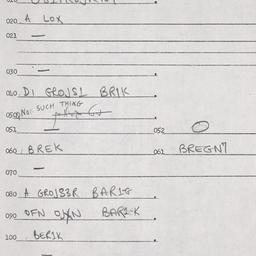 020 A LOX
021 —
030 —
040 DI GROJS1 BR1K
050 NO SUCH THING
051 052 O
060 BREK 061 BREGN
070 —
080 A GROJS3R BAR1G
090 OFN BAR1-K
100 BER1K